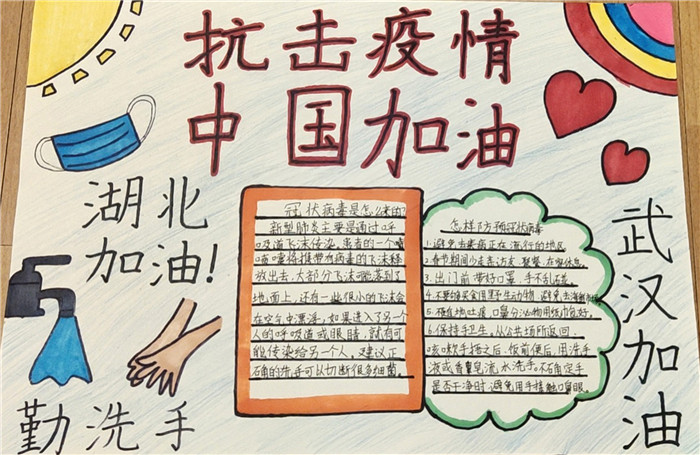 抗击疫情
中国加油
湖北
加油!
勤洗手
冠状病毒是怎么来的?
新型肺炎主要是通过呼
吸道飞沫传染,患者的一个喷
嚏将携带有病毒的飞沫释
放出去,大部分飞沫
地面上,还有一些很小的飞沫会
在空气中漂浮,如果进入了另一个
人的呼吸道或眼睛,就有可
能传染给另一个人,建议正
确的洗手可以切断很多细菌。
怎样预防冠状病毒
1.避免去疾病正在流行的地区
2.春节期间少走亲访友,聚餐,在家休息。
3.出门前带好口罩,手不乱碰。
4.不要购买食用野生动物,避免去
5.不随地吐痰,口鼻分泌物用纸巾包好。
6.保持手卫生,从公共场所返回,
咳嗽手捂之后,饭前便后,用洗手
液或香皂流水洗手。不确定手
是否干净时,避免用手接触口鼻眼
武汉加油